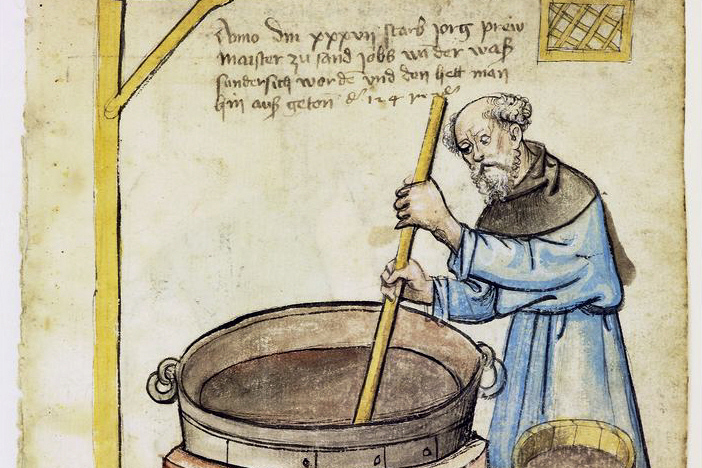 Anno dm xxxvii starb jorg prew
maister zu sand jobs wan der was
sundersich worde vnd den hett man
hin aus geton